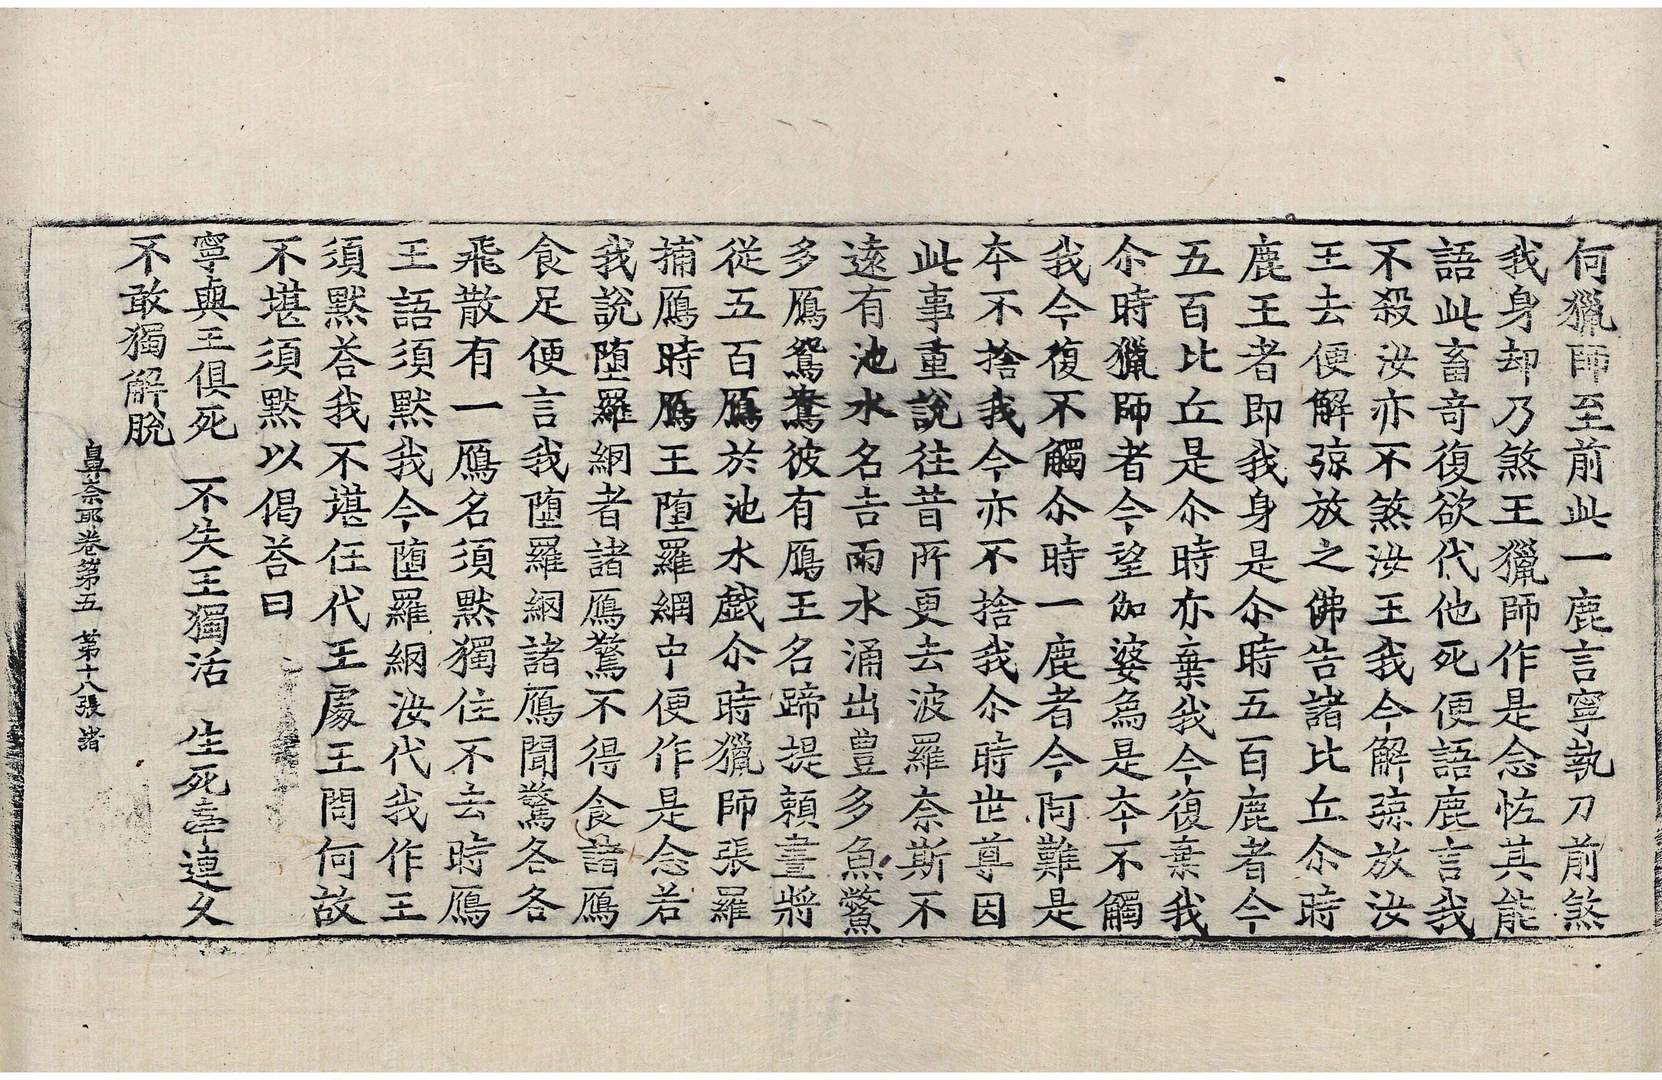 何獵師至前此一鹿言寧執刀前煞
我身却乃煞王獵師作是念恠其能
語此畜奇復欲代他死便語鹿言我
不殺汝亦不煞汝王我今解弶放汝
王去便解弶放之佛告諸比丘尒時
鹿王者即我身是尒時五百鹿者今
五百比丘是尒時亦棄我今復棄我
尒時獵師者今望伽婆爲是夲不觸
我今復不觸尒時一鹿者今阿難是
夲不捨我今亦不捨我尒時世尊因
此事重說往昔所更去波羅奈斯不
遠有池水名吉雨水涌出豊多魚鱉
多鴈鴛鴦彼有鴈王名蹄提賴晝將
従五百鴈於池水戯尒時獵師張羅
捕鴈時鴈王墮羅網中便作是念若
我說堕羅網者諸鴈驚不得食諸鴈
食足便言我墮羅網諸鴈聞驚各各
飛散有一鴈名須默獨住不去時鴈
王語須默我今墮羅網汝代我作王
須默荅我不堪任代王處王問何故
不堪須默以偈荅曰
寧與王俱死　不失王獨活　生死臺連久
不敢獨解脫
鼻奈耶卷第五　第十八張　諸